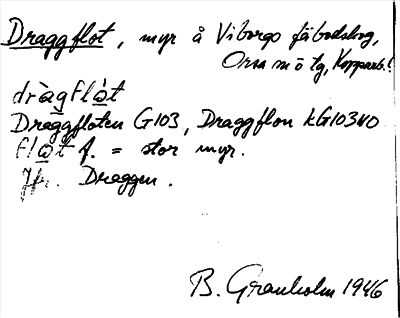 Draggflot, myr å Viborgs fäbodskog,
Orsa m ö tg, Kopparb.l.
dràgflòt
Draggfloten G103, Draggflon kG103 VO
flòt f. = stor myr.
Jfr. Draggen.
B. Granholm 1946